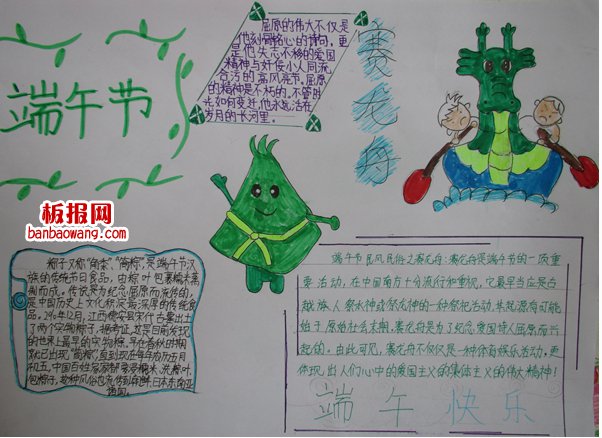 端午节
屈原的伟大不仅是
他刻骨铭心的诗句，更
是他矢志不移的爱国
精神与奸佞小人同流
合污的高风亮节。屈原
的精神是不朽的，不管时
光如何变迁，他永远活在
岁月的长河里。
赛龙舟
板报网
banbaowang.com
粽子又称"角黍"、"筒粽"，是端午节汉
族的传统节日食品，由粽叶包裹糯米蒸
制而成。传说是为纪念屈原而流传的，
是中国历史上文化积淀最深厚的传统食
品。
了两个实物粽子，据考证，这是目前发现
的世界上最早的实物粽。早在春秋时期
就已出现"筒粽"，直到现在每年农历五月
初五，中国百姓家家都要浸糯米、洗粽叶、
包粽子，
端午节民风民俗之赛龙舟：赛龙舟是端午节的一项重
要活动，在中国南方十分流行和重视，它最早当应是古
越族人祭水神或祭龙神的一种祭祀活动，其起源有可能
始于原始社会末期。赛龙舟是为了纪念爱国诗人屈原而兴
起的。由此可见，赛龙舟不仅仅是一种体育娱乐活动，更
体现出人们心中的爱国主义的集体主义的伟大精神！
端午快乐